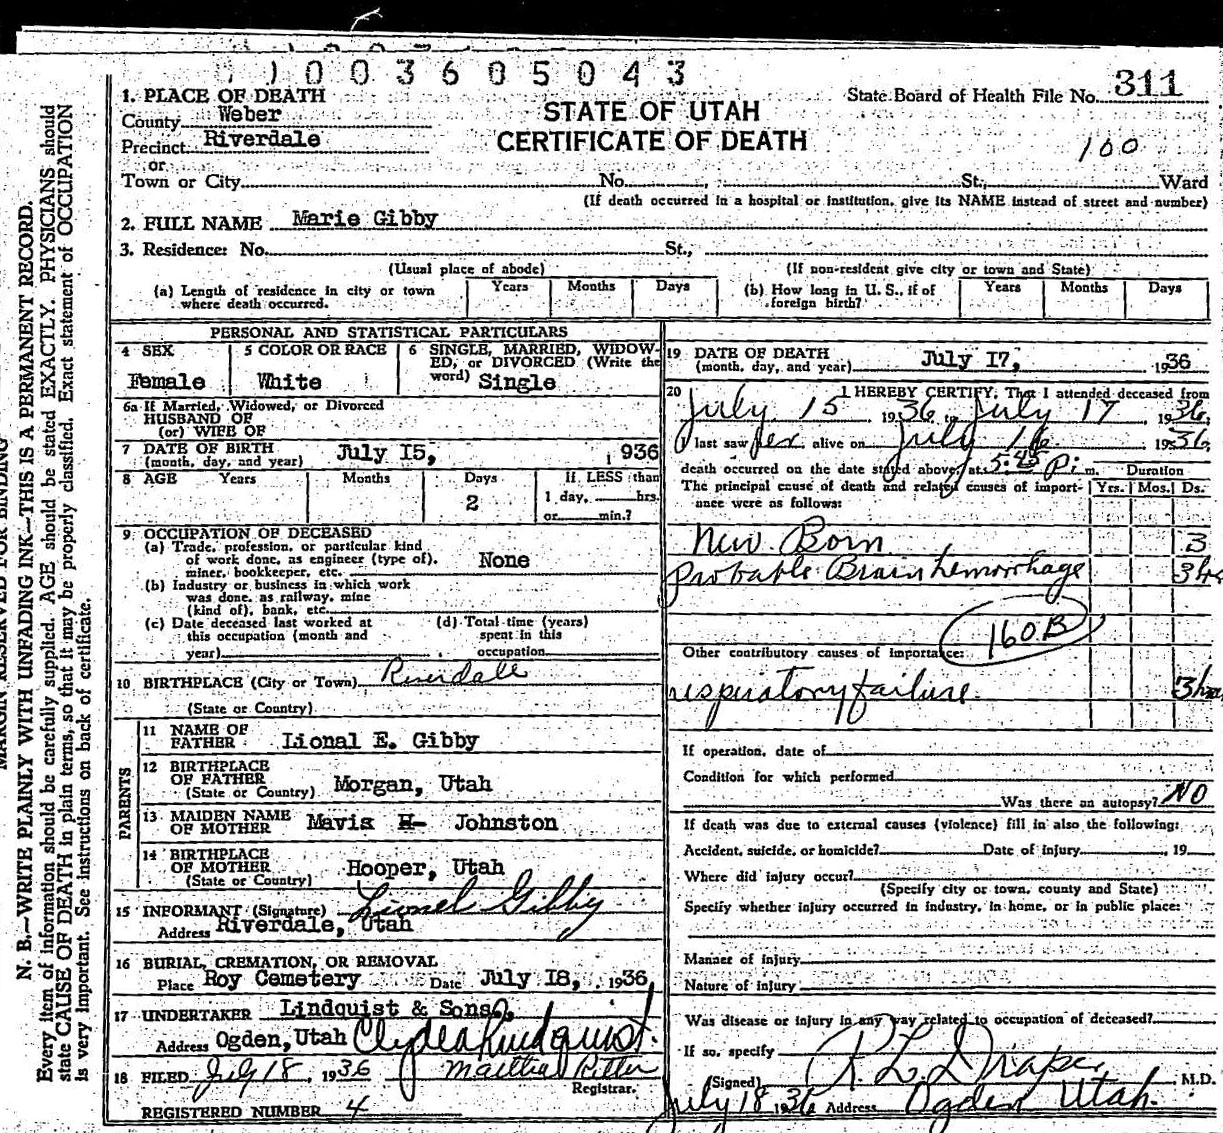 1003605043
311
1. PLACE OF DEATH
County Weber
Precinct Riverdale
or
Town or City No. St., Ward
STATE OF UTAH
CERTIFICATE OF DEATH
State Board of Health File No.
100
(If death occurred in a hospital or institution, give its NAME instead of street and number)
2. FULL NAME Marie Gibby
3. Residence: No. St.,
(Usual place of abode) (If non-resident give city or town and State)
(a) Length of residence in city or town where death occurred. Years Months Days
(b) How long in U. S., if of foreign birth? Years Months Days
PERSONAL AND STATISTICAL PARTICULARS
4 SEX Female
5 COLOR OR RACE White
6 SINGLE, MARRIED, WIDOWED, or DIVORCED (Write the word) Single
6a If Married, Widowed, or Divorced
HUSBAND OF
(or) WIFE OF
7 DATE OF BIRTH
(month, day, and year) July I5, 1936
8 AGE Years Months Days 2
If LESS than
1 day, hrs.
or min.?
9 OCCUPATION OF DECEASED
(a) Trade, profession, or particular kind
of work done, as engineer (type of),
miner, bookkeeper, etc. None
(b) Industry or business in which work
was done, as railway, mine
(kind of), bank, etc.
(c) Date deceased last worked at
this occupation (month and
year)
(d) Total time (years)
spent in this
occupation
10 BIRTHPLACE (City or Town) Riverdale
(State or Country)
PARENTS
11 NAME OF
FATHER Lional E. Gibby
12 BIRTHPLACE
OF FATHER
(State or Country) Morgan, Utah
13 MAIDEN NAME
OF MOTHER Mavis H- Johnston
14 BIRTHPLACE
OF MOTHER
(State or Country) Hooper, Utah
15 INFORMANT (Signature) Lionel Gibby
Address Riverdale, Utah
16 BURIAL, CREMATION, OR REMOVAL
Place Roy Cemetery Date July I8, 1936
17 UNDERTAKER Lindquist & Sons
Address Ogden, Utah Clyde Lindquist
18 FILED July 18, 1936 Martha Ritter
Registrar.
REGISTERED NUMBER 4
19 DATE OF DEATH
(month, day, and year) July I7, 1936
20 I HEREBY CERTIFY, That I attended deceased from
July 15 1936 to July 17 1936,
I last saw her alive on July 16 1936,
death occurred on the date stated above, at 5:45 P. m. Duration
The principal cause of death and related causes of importance were as follows: Yrs. Mos. Ds.
New Born 3
Probable Brain hemorrhage 3 hrs
160B
Other contributory causes of importance:
respiratory failure. 3 hrs
If operation, date of
Condition for which performed
Was there an autopsy? NO
If death was due to external causes (violence) fill in also the following:
Accident, suicide, or homicide? Date of injury , 19
Where did injury occur?
(Specify city or town, county and State)
Specify whether injury occurred in industry, in home, or in public place:
Manner of injury
Nature of injury
Was disease or injury in any way related to occupation of deceased?
If so, specify
(Signed) R. L. Draper, M.D.
July 18 1936 Address Ogden Utah.
MARGIN RESERVED FOR BINDING
N. B.—WRITE PLAINLY WITH UNFADING INK—THIS IS A PERMANENT RECORD.
Every item of information should be carefully supplied. AGE should be stated EXACTLY. PHYSICIANS should
state CAUSE OF DEATH in plain terms, so that it may be properly classified. Exact statement of OCCUPATION
is very important. See instructions on back of certificate.